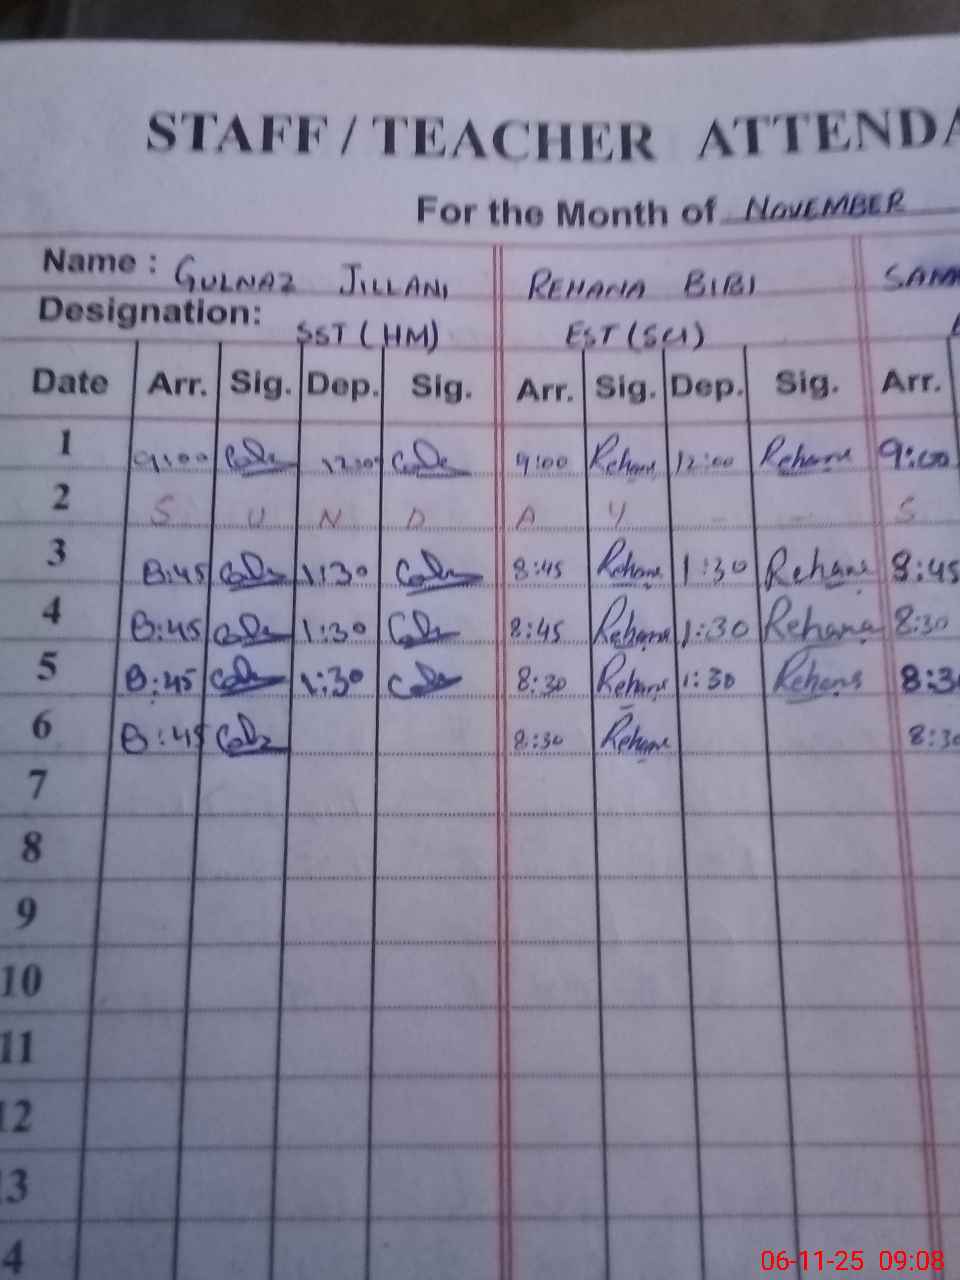 STAFF / TEACHER ATTENDA
For the Month of NOVEMBER
Name : GULNAZ JILLANI REHANA BIBI
Designation: SST (HM) EST (SCI)
Date Arr. Sig. Dep. Sig. Arr. Sig. Dep. Sig. Arr.
1 9:00 12:00 9:00 Rehana 12:00 Rehana 9:00
2 S U N D A Y - - S
3 8:45 1:30 8:45 Rehana 1:30 Rehana 8:45
4 8:45 1:30 8:45 Rehana 1:30 Rehana 8:30
5 8:45 1:30 8:30 Rehana 1:30 Rehana 8:3
6 8:45 8:30 Rehana 8:30
7
8
9
10
11
12
13
4
06-11-25 09:08